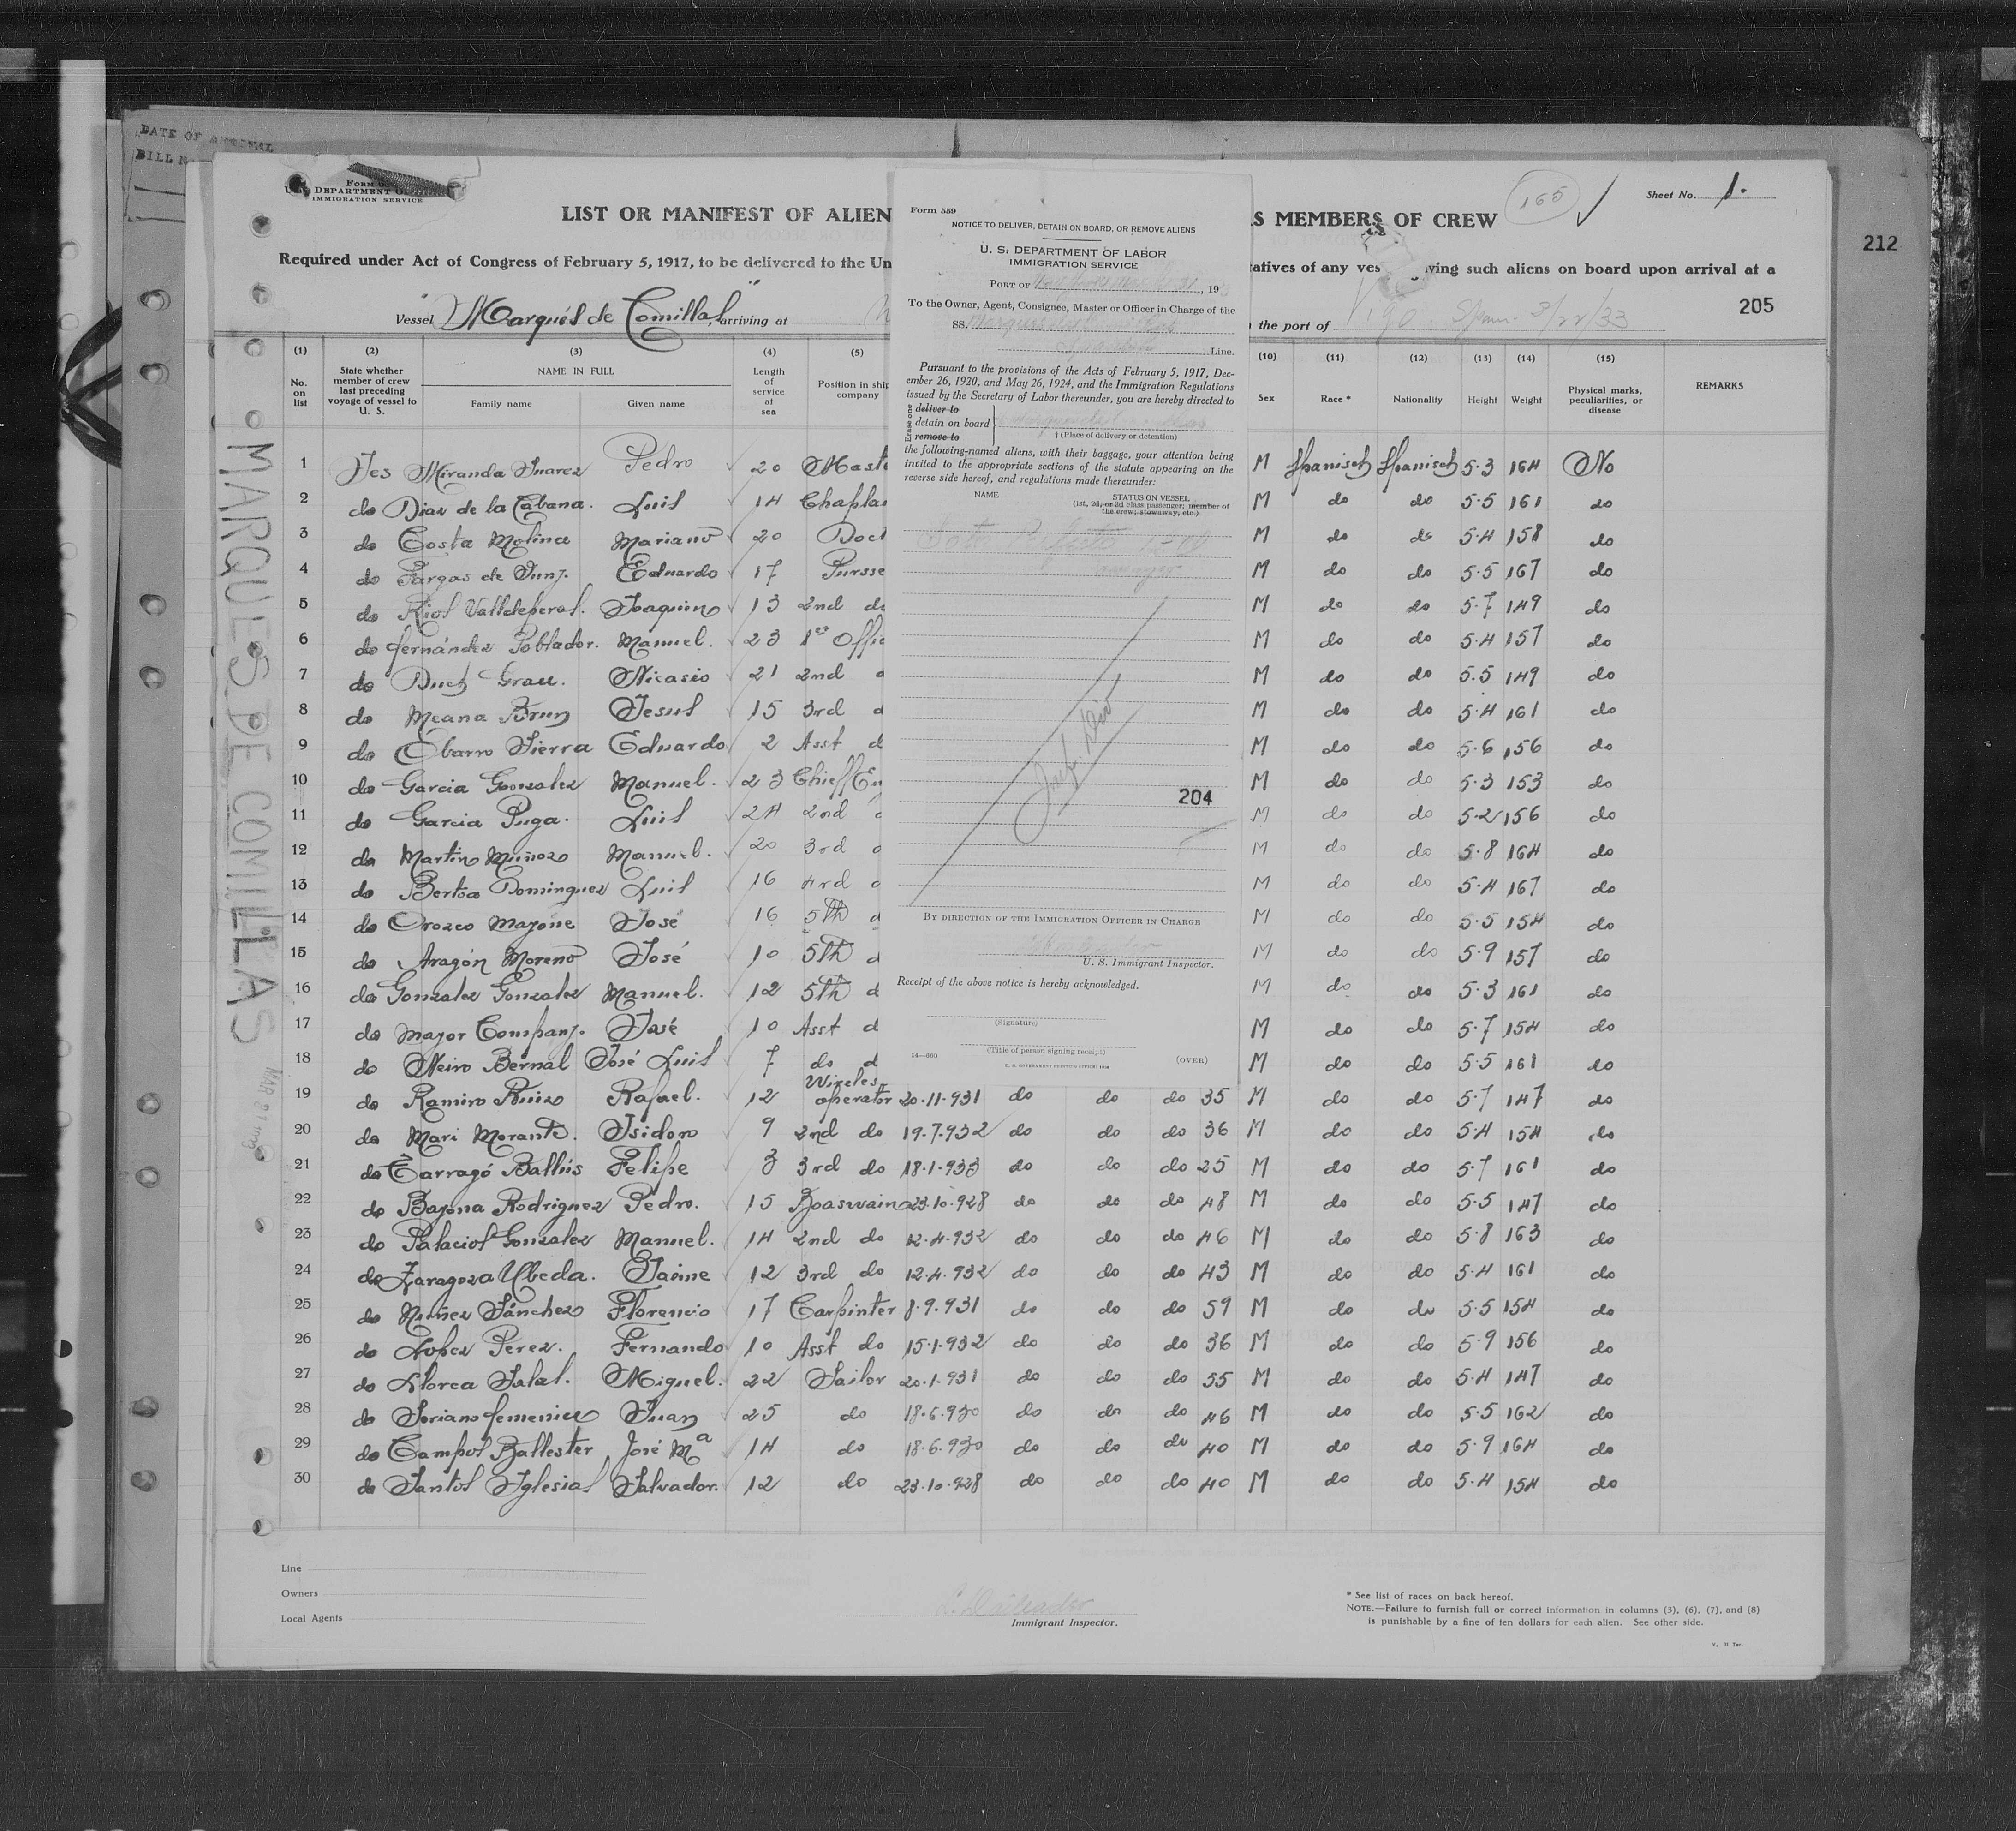 DATE OF ARRIVAL
BILL N
U. S. DEPARTMENT OF
IMMIGRATION SERVICE
165
Sheet No. 1.
LIST OR MANIFEST OF ALIEN
S MEMBERS OF CREW
212
Required under Act of Congress of February 5, 1917, to be delivered to the Un
tatives of any ves ing such aliens on board upon arrival at a
205
Vessel "Marqués de Comillas", arriving at
the port of Vigo Spain 3/22/33
Form 559
NOTICE TO DELIVER, DETAIN ON BOARD, OR REMOVE ALIENS
U. S. DEPARTMENT OF LABOR
IMMIGRATION SERVICE
PORT OF , 19
To the Owner, Agent, Consignee, Master or Officer in Charge of the
SS.
Line.
Pursuant to the provisions of the Acts of February 5, 1917, Dec-
ember 26, 1920, and May 26, 1924, and the Immigration Regulations
issued by the Secretary of Labor thereunder, you are hereby directed to
Erase one
deliver to
detain on board
remove to
† (Place of delivery or detention)
the following-named aliens, with their baggage, your attention being
invited to the appropriate sections of the statute appearing on the
reverse side hereof, and regulations made thereunder:
NAME
STATUS ON VESSEL
(1st, 2d, or 3d class passenger; member of
the crew; stowaway, etc.)
204
BY DIRECTION OF THE IMMIGRATION OFFICER IN CHARGE
U. S. Immigrant Inspector.
Receipt of the above notice is hereby acknowledged.
(Signature)
(Title of person signing receipt)
14—960
(OVER)
MARQUES DE COMILLAS
(1) (2) (3) (4) (5) (10) (11) (12) (13) (14) (15)
No. on list
State whether member of crew last preceding voyage of vessel to U. S.
NAME IN FULL
Family name Given name
Length of service at sea
Position in ship company
Sex Race * Nationality Height Weight
Physical marks, peculiarities, or disease
REMARKS
1 Yes Miranda Suarez Pedro 20 Maste M Spanisch Spanisch 5.3 164 No
2 do Diaz de la Cabana. Luis 14 Chaplai M do do 5.5 161 do
3 do Costa Molina Mariano 20 Doct M do do 5.4 158 do
4 do Fargas de Junz. Eduardo 17 Pursse M do do 5.5 167 do
5 do Rios Valldeperas. Joaquin 13 2nd do M do do 5.7 149 do
6 do Fernández Poblador. Manuel. 23 1er Offic M do do 5.4 157 do
7 do Duch Grau. Nicasio 21 2nd M do do 5.5 149 do
8 do Meana Brun Jesus 15 3rd d M do do 5.4 161 do
9 do Obarro Sierra Eduardo 2 Asst d M do do 5.6 156 do
10 do Garcia Gonzalez Manuel. 23 Chieff En M do do 5.3 153 do
11 do Garcia Puga. Luis 24 2nd M do do 5.2 156 do
12 do Martin Muñoz Manuel. 20 3rd M do do 5.8 164 do
13 do Bertoa Dominguez Luis 16 4rd M do do 5.4 167 do
14 do Orozco Mayone José 16 5th d M do do 5.5 154 do
15 do Aragón Moreno José 10 5th d M do do 5.9 157 do
16 do Gonzalez Gonzalez Manuel. 12 5th d M do do 5.3 161 do
17 do Mayor Company. José 10 Asst d M do do 5.7 154 do
18 do Neiro Bernal José Luis 7 do d M do do 5.5 161 do
19 do Ramiro Ruiz Rafael. 12 Wireless operator 20.11.931 do do do 35 M do do 5.7 147 do
20 do Mari Morante. Isidoro 9 2nd do 19.7.932 do do do 36 M do do 5.4 154 do
21 do Tarragó Ballús Felipe 3 3rd do 18.1.933 do do do 25 M do do 5.7 161 do
22 do Bayona Rodriguez Pedro. 15 Boaswain 23.10.928 do do do 48 M do do 5.5 147 do
23 do Palacios Gonzalez Manuel. 14 2nd do 12.4.932 do do do 46 M do do 5.8 163 do
24 do Zaragoza Ubeda. Jaime 12 3rd do 12.4.932 do do do 43 M do do 5.4 161 do
25 do Nuñez Sánchez Florencio 17 Carpinter 8.9.931 do do do 59 M do do 5.5 154 do
26 do Lopez Perez. Fernando 10 Asst do 15.1.932 do do do 36 M do do 5.9 156 do
27 do Llorca Salas. Miguel. 22 Sailor 20.1.931 do do do 55 M do do 5.4 147 do
28 do Soriano Femenia Juan 25 do 18.6.930 do do do 46 M do do 5.5 162 do
29 do Campos Ballester José Mª 14 do 18.6.930 do do do 40 M do do 5.9 164 do
30 do Santos Iglesias Salvador. 12 do 23.10.928 do do do 40 M do do 5.4 154 do
Line
Owners
Local Agents
Immigrant Inspector.
* See list of races on back hereof.
NOTE.—Failure to furnish full or correct information in columns (3), (6), (7), and (8)
is punishable by a fine of ten dollars for each alien. See other side.